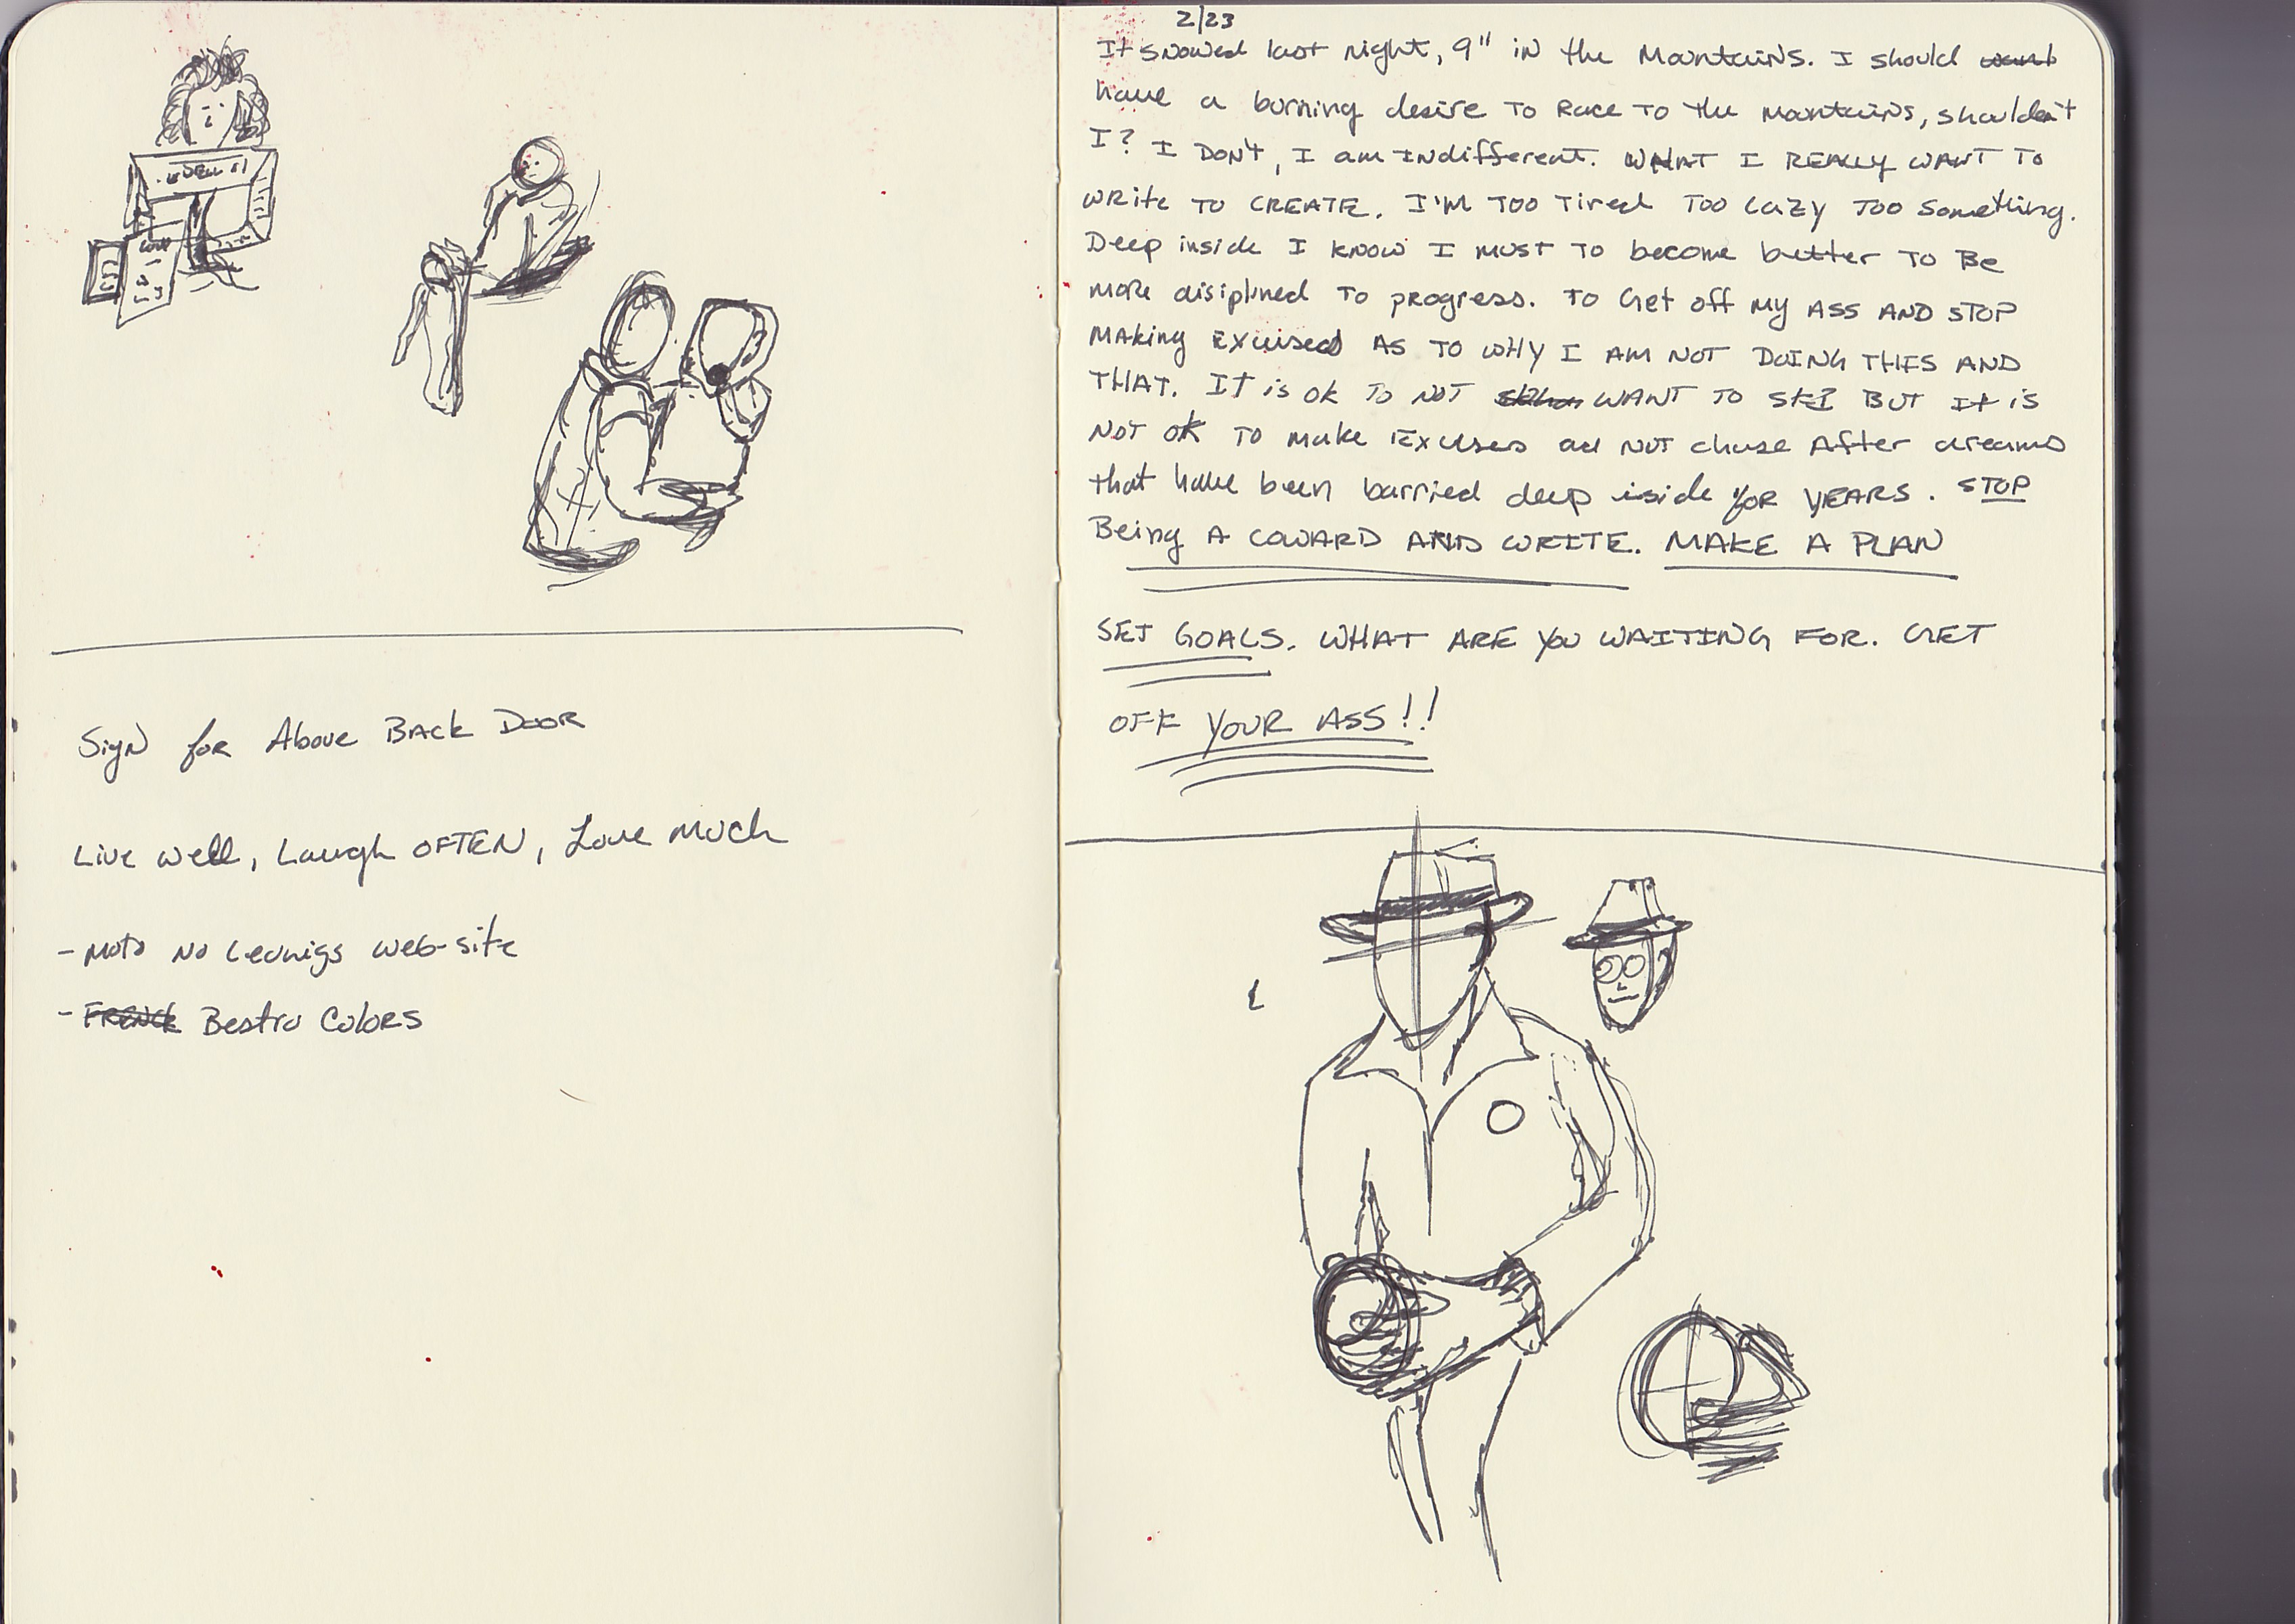 DELL
Sign for Above Back Door
Live well, Laugh OFTEN, Love Much
- Moto No web-site
- FRENCH Bestro Colors
2/23
It snowed last night, 9" in the Mountains. I should want
have a burning desire to Race to the mountains, shouldn't
I? I DON'T, I am indifferent. WHAT I REALLY WANT TO
WRite TO CREATE. I'M TOO Tired TOO Lazy TOO Something.
Deep inside I know I must TO become better TO Be
more disiplined TO progress. To Get off my ASS AND STOP
MAKing Excuses AS TO WHY I AM NOT DOING THIS AND
THAT. It is ok To NOT WANT TO SKI BUT It is
NOT OK TO make Excuses ad NOT chase After dreams
that have been burried deep inside for YEARS. STOP
Being A COWARD AND WRITE. MAKE A PLAN
SET GOALS. WHAT ARE YOU WAITING FOR. GET
OFF YOUR ASS!!